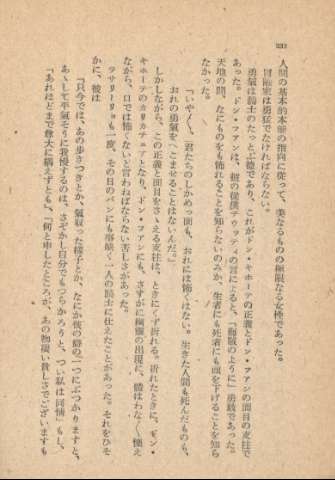 232
人間の基本的本能の指向に従って、美なるものの極限なる女性であった。
冒険家は勇猛でなければならない。
勇氣は騎士のたっとぶ徳であり、これがドン・キホーテの正義とドン・ファンの面目の支柱で
あった。ドン・ファンは、彼の從僕の言によると、「海賊のように」勇敢であった。
天地の間、なにものをも怖れることを知らないのみか、生者にも死者にも頭を下げることを知ら
なかった。
「いや〳〵、君たちのしかめっ面も、おれには怖くはない。生きた人間も死んだものも、
おれの勇氣をへこませることはないんだ。」
しかしながら、この正義と面目をささえる支柱は、ときに〳〵折れる。折れたときに、ドン・
キホーテのカリカチュアとなり、ドン・ファンにも、さすがに幽靈の出現に、膽はわなく慄え
ながら、口では怖くないと言わねばならない苦しさがあった。
ラサリーリョも一度、その日のパンにも事欠く一人の騎士に仕えたことがあった。それをひそ
かに、彼は
「只今では、あの歩きつきとか、氣取った様子とか、なにか彼の癖の一つにぶつかりますと、
あゝして平氣そうに我慢するのは、さぞかし自分でもつらかろうと、つい私は同情もし、
「あれほどまで尊大に構えずとも」、「何と申したところが、あの物凄い貧しさでございますも